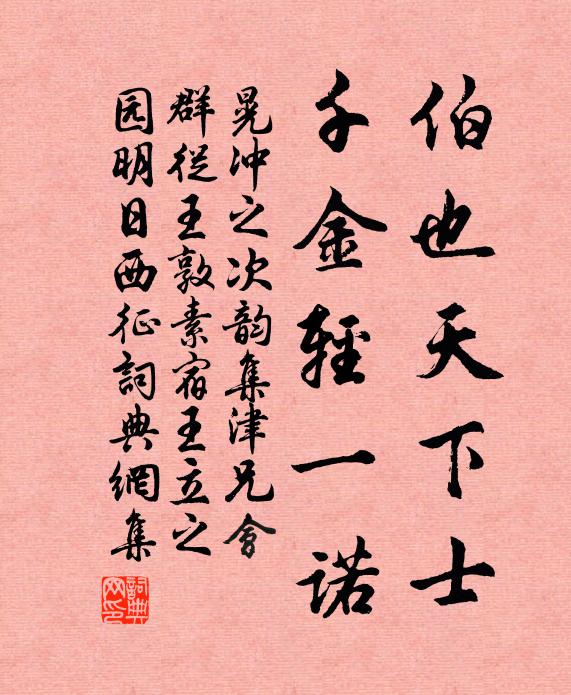 伯也天下士
千金輕一諾
晁沖之次韵集津兄會
群從王敦素宿王立之
园明日西征詞典網集
詞典网印